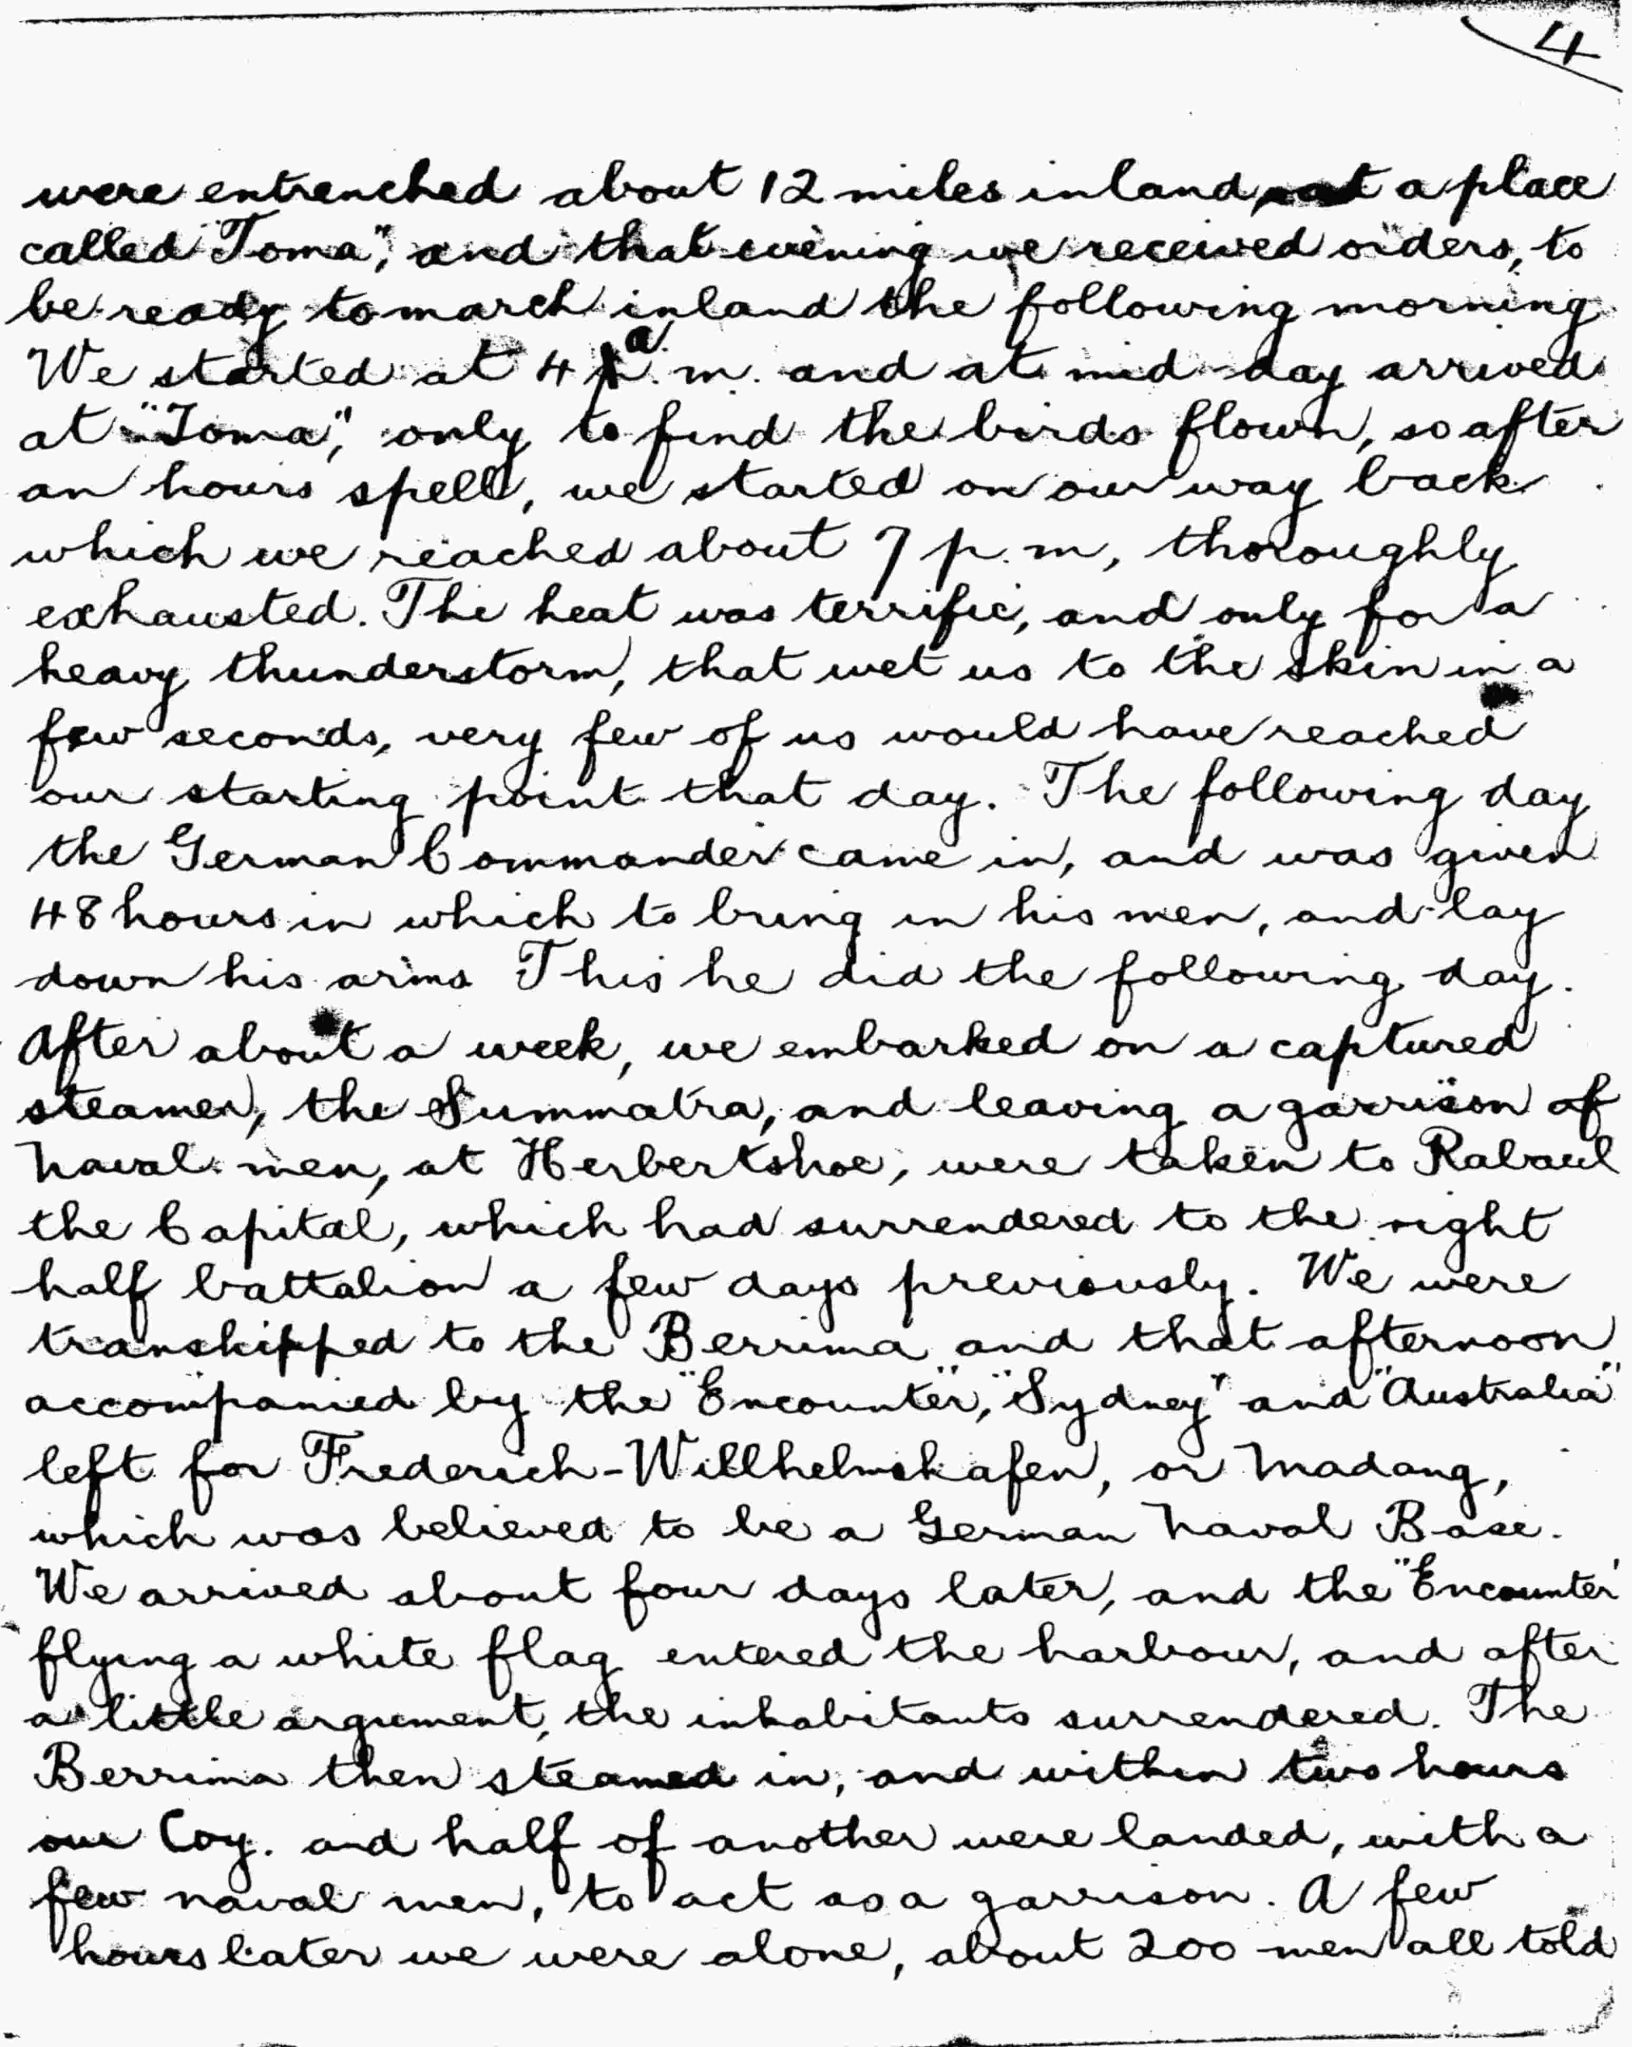 4
were entrenched about 12 miles inland, at a place
called "Toma", and that evening we received orders, to
be ready to march inland the following morning.
We started at 4 a.m. and at mid-day arrived
at "Toma", only to find the birds flown, so after
an hours spell, we started on our way back
which we reached about 7 p.m, thoroughly
exhausted. The heat was terrific, and only for a
heavy thunderstorm, that wet us to the skin in a
few seconds, very few of us would have reached
our starting point that day. The following day
the German Commander came in, and was given
48 hours in which to bring in his men, and lay
down his arms This he did the following day.
After about a week, we embarked on a captured
steamer, the Summatra, and leaving a garrison of
Naval men, at Herbertshoe, were taken to Rabaul
the Capital, which had surrendered to the right
half battalion a few days previously. We were
transhipped to the Berrima and that afternoon
accompanied by the "Encounter", "Sydney" and "Australia"
left for Frederich-Willhelmshafen, or Madang,
which was believed to be a German Naval Base.
We arrived about four days later, and the "Encounter"
flying a white flag entered the harbour, and after
a little argument, the inhabitants surrendered. The
Berrima then steamed in, and within two hours
our Coy. and half of another were landed, with a
few naval men, to act as a garrison. A few
hours later we were alone, about 200 men all told